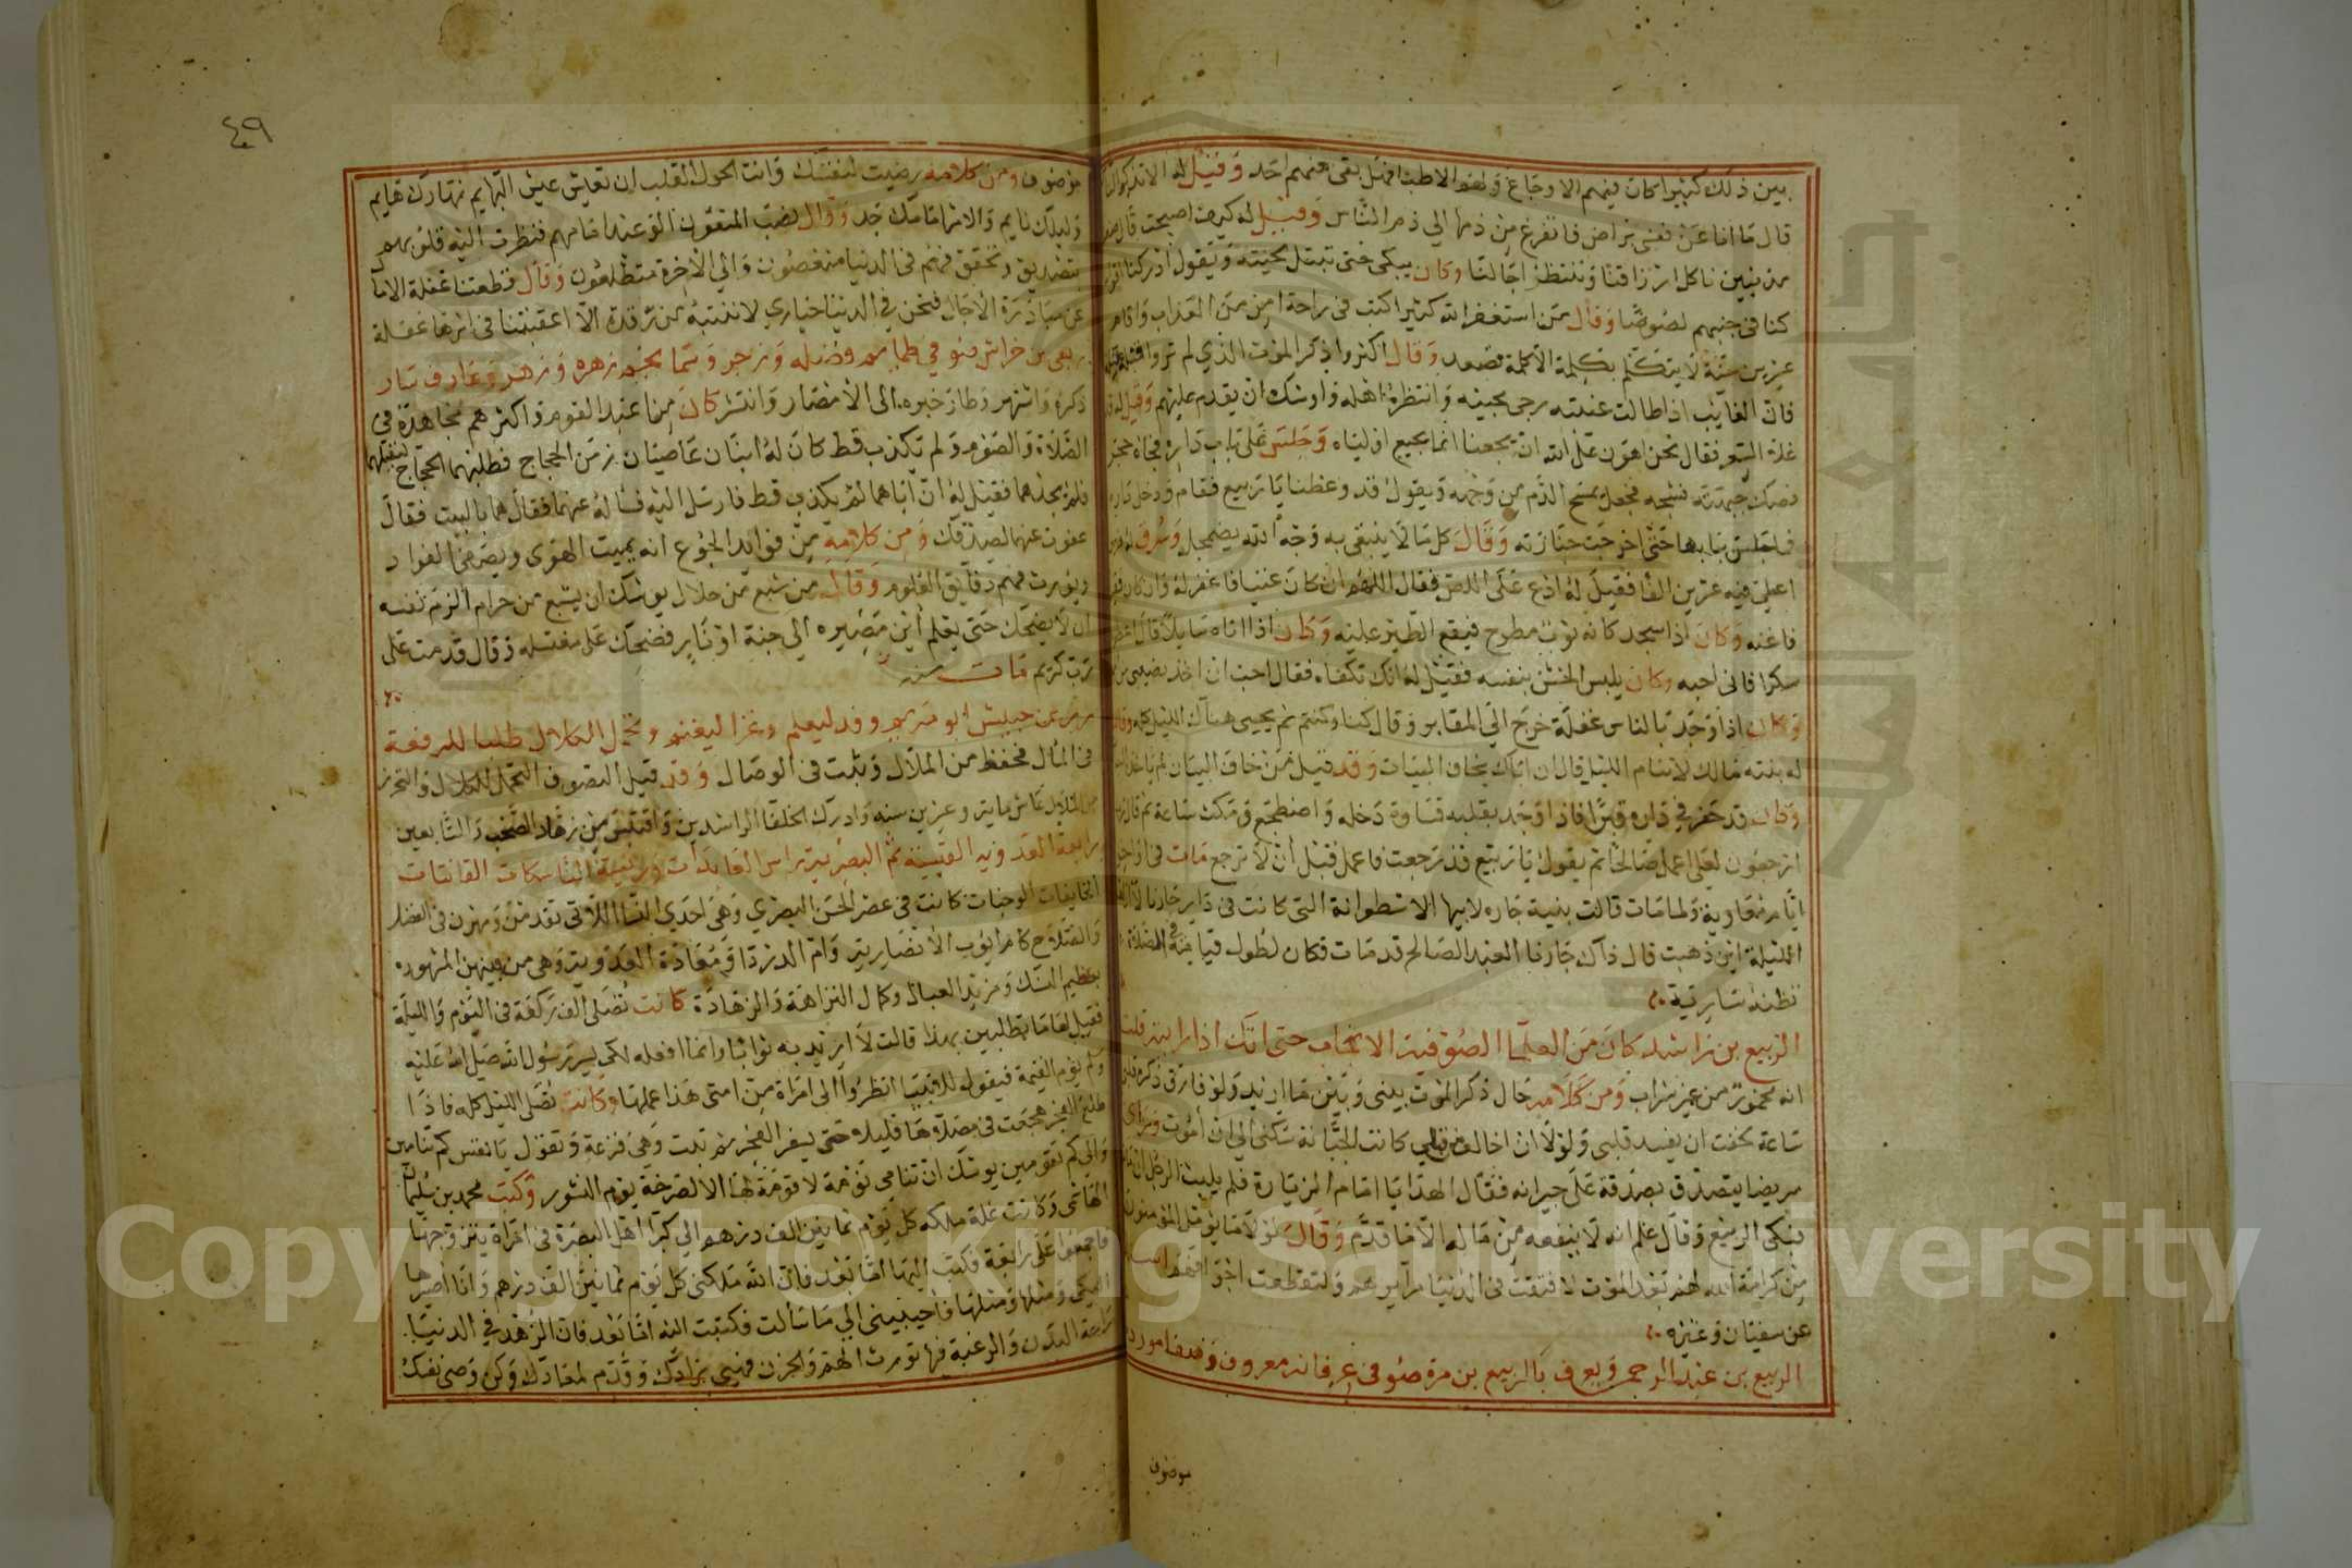 بين ذلك كثيرا كان فيهم الاوجاع ولهم الاطبا فهل بقى منهم احد وقيل له الا تذكر الناس
قال ما انا عن نفسى براض فاتفرغ من ذمها الى ذم الناس وقيل له كيف اصبحت قال
مذنبين ناكل ارزاقنا وننتظر اجالنا وكان يبكى حتى تبتل لحيته ويقول ادركنا
كنا فى جنبهم لصوصا وقال من استغفر الله كثيرا كتب فى راحة امن من العذاب واقام
عشرين سنة لا يتكلم بكلمة الا كلمة تصعد وقال اكثروا ذكر الموت الذي لم تروا قبله
فان الغايب اذا طالت غيبته رجى مجيئه وانتظره اهله واوشك ان يقدم عليهم وقيل له
فقال نحن اهون على الله ان يجيعنا انما يجيع اولياه وجلس على باب داره فجاه حجر
فصك جبهته فشجه فجعل يمسح الدم عن وجهه ويقول قد وعظت يا ربيع فقام ودخل داره
فما جلس ببابها حتى اخرجت جنازته وقال كل ما لا يبتغى به وجه الله يضمحل وسرق له
اعطي فيه عشرين الفا فقيل له ادع على اللص فقال اللهم ان كان غنيا فاغفر له وان كان
فاغنه وكان اذا سجد كانه ثوب مطروح فيقع الطير عليه وكان اذا اتاه سايل قال
سكرا فانى احبه وكان يلبس الخشن بنفسه فقيل له انك تكفاه فقال احب ان اخذ بنصيبى من
وكان اذا وجد بالناس غفلة خرج الى المقابر وقال كنا وكنتم ثم يحيى هناك الليل كله وقالت
له بنته مالك لا تنام الليل قال ان اباك يخاف البيات وقد قيل من خاف البيات لم
وكان قد حفر في داره قبرا فاذا وجد بقلبه قساوة دخله واضطجع ومكث ساعة ثم قال
ارجعون لعلى اعمل صالحا ثم يقول يا ربيع قد رجعت فاعمل قبل ان لا ترجع مات فى
ايام معاوية ولما مات قالت بنية جاره لابيها الاسطوانة التى كانت فى دار جارنا
الليلة اين ذهبت قال ذاك جارنا العبد الصالح قد مات فكان لطول قيامه فى الصلاة
تظنه سارية
الربيع بن راشد كان من العلما الصوفية الانجاب حتى انك اذا رايته قلت
انه مخمور من غير شراب ومن كلامه حال ذكر الموت بينى وبين ما اريد ولو فارق ذكره قلبى
ساعة لخفت ان يفسد قلبى ولولا ان اخالف من قبلي كانت الجبانة سكنى الى ان اموت وراى
مريضا يتصدق بصدقة على جيرانه فقال الهدايا امام الزيارة فلم يلبث الرجل ان مات
فبكى الربيع وقال علم انه لا ينفعه من ماله الا ما قدم وقال لولا ما يؤمل المؤمنون
من كرامة الله لهم بعد الموت لانشقت فى الدنيا مرايرهم ولتقطعت اجوافهم
عن سفيان وغيره
الربيع بن عبد الرحمن ويعرف بالربيع بن مرة صوفى عرفانه معروف وفد فا مورد
موصوف
٤٩
موصوف ومن كلامه رضيت لنفسك وانت الحول القلب ان تعيش عيش البهايم نهارك هايم
وليلك نايم والامر امامك جد وقال نصب المتقون الوعيد امامهم فنظرت اليه قلوبهم
بتصديق وتحقيق فهم فى الدنيا منغصون والى الاخرة متطلعون وقال قطعتنا غفلة الامال
عن مبادرة الاجال فنحن في الدنيا حيارى لا ننتبه من رقدة الا اعقبتنا فى اثرها غفلة
ربعى بن خراش
ذكره واشتهر وطار خبره الى الامصار وانتشر كان من اعبد القوم واكثرهم مجاهدة فى
الصلاة والصوم ولم يكذب قط كان له ابنان عاصيان زمن الحجاج فطلبهما الحجاج ليقتلهما
فلم يجدهما فقيل له ان اباهما لم يكذب قط فارسل اليه فساله عنهما فقال هما بالبيت فقال
عفوت عنهما لصدقك ومن كلامه من فوايد الجوع انه يميت الهوى
ويورث فهم دقايق العلوم وقال من شبع من حلال يوشك ان يشبع من حرام الزم نفسه
ان لا يضحك حتى يعلم اين مصيره الى جنة او نار فضحك على مغتسله وقال قدمت على
رب كريم مات سنه
زر بن حبيش ابو مريم وفد ليعلم وغزا ليغنم
وقد قيل التصوف
عاش ماية وعشرين سنه وادرك الخلفا الراشدين واقتبس من زهاد الصحب والتابعين
رابعة العدويه القيسية ثم البصرية راس العابدات ورئيسة الناسكات القانتات
الخايفات الوجلات كانت فى عصر الحسن البصري وهى احدى النسا اللاتى تقدمن ومهرن فى الفضل
والصلاح كام ايوب الانصارية وام الدردا ومعاذة العدوية وهى من بينهن المشهورة
بعظيم النسك ومزيد العبادة وكمال النزاهة والزهادة كانت تصلى الف ركعة فى اليوم والليلة
فقيل لها ما تطلبين بهذا قالت لا اريد به ثوابا وانما افعله لكى يسر رسول الله صلى الله عليه
وسلم يوم القيمة فيقول للانبيا انظروا الى امراة من امتى هذا عملها وكانت تصلى الليل كله فاذا
طلع الفجر هجعت فى مصلاها قليلا حتى يسفر الفجر ثم تثب وهى فزعة وتقول يا نفس كم تنامين
والى كم تقومين يوشك ان تنامى نومة لا قومة لها الا لصرخة يوم النشور وكتب محمد بن سليمان
الهاشمى وكانت غلة ملكه كل يوم ثمانين الف درهم الى كبرا اهل البصرة فى امراة يتزوجها
فاجمعوا على رابعة فكتب اليها اما بعد فان الله ملكنى كل يوم ثمانين الف درهم وانا اصيرها
اليكى ومثلها ومثلها فاجيبينى الى ما سالت فكتبت اليه اما بعد فان الزهد في الدنيا
راحة البدن والرغبة فيها تورث الهم والحزن فهيى زادك وقدم لمعادك وكن وصى نفسك
Copyright © King Saud University